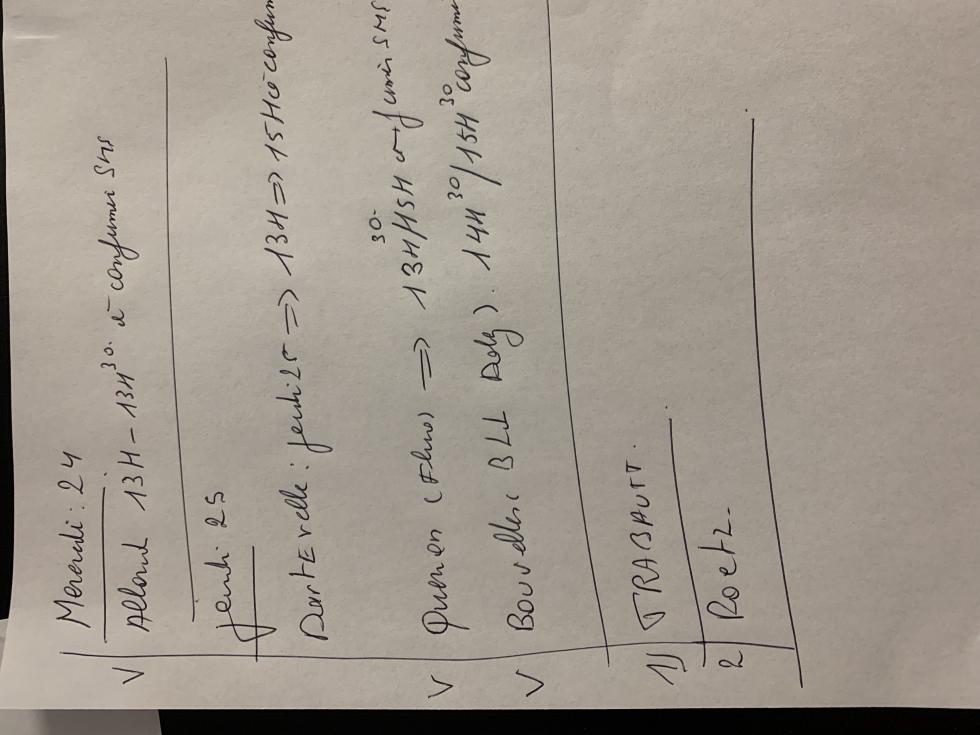 Mercredi : 24
V Alland 13H - 13H30 à confirmer SMS
Jeudi 25
DartEvelle : Jeudi 25 => 13H => 15H à confirm
V Quenen => 13H30/15H confirmés SMS
V Bouvelle ( BLD ). 14H30/15H30 confirmé
1) TRABAUTT.
2 Roetz.